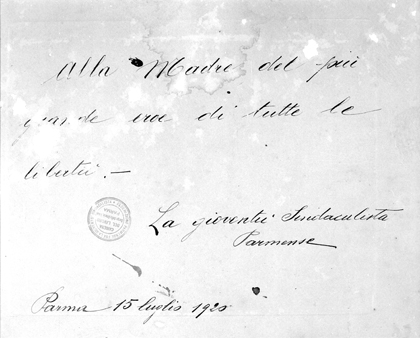 Alla Madre del più
grande eroe di tutte le
libertà. —
La gioventù Sindacalista
Parmense
Parma 15 luglio 192